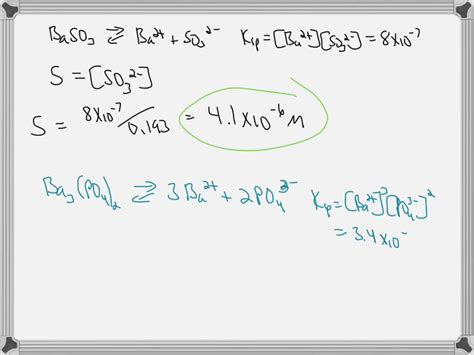 BaSO3 ⇌ Ba²⁺ + SO3²⁻ Ksp = [Ba²⁺][SO3²⁻] = 8×10⁻⁷
S = [SO3²⁻]
S = 8×10⁻⁷/0.193 = 4.1×10⁻⁶ M
Ba3(PO4)2 ⇌ 3Ba²⁺ + 2PO4³⁻ Ksp = [Ba²⁺]³[PO4³⁻]²
= 3.4×10⁻